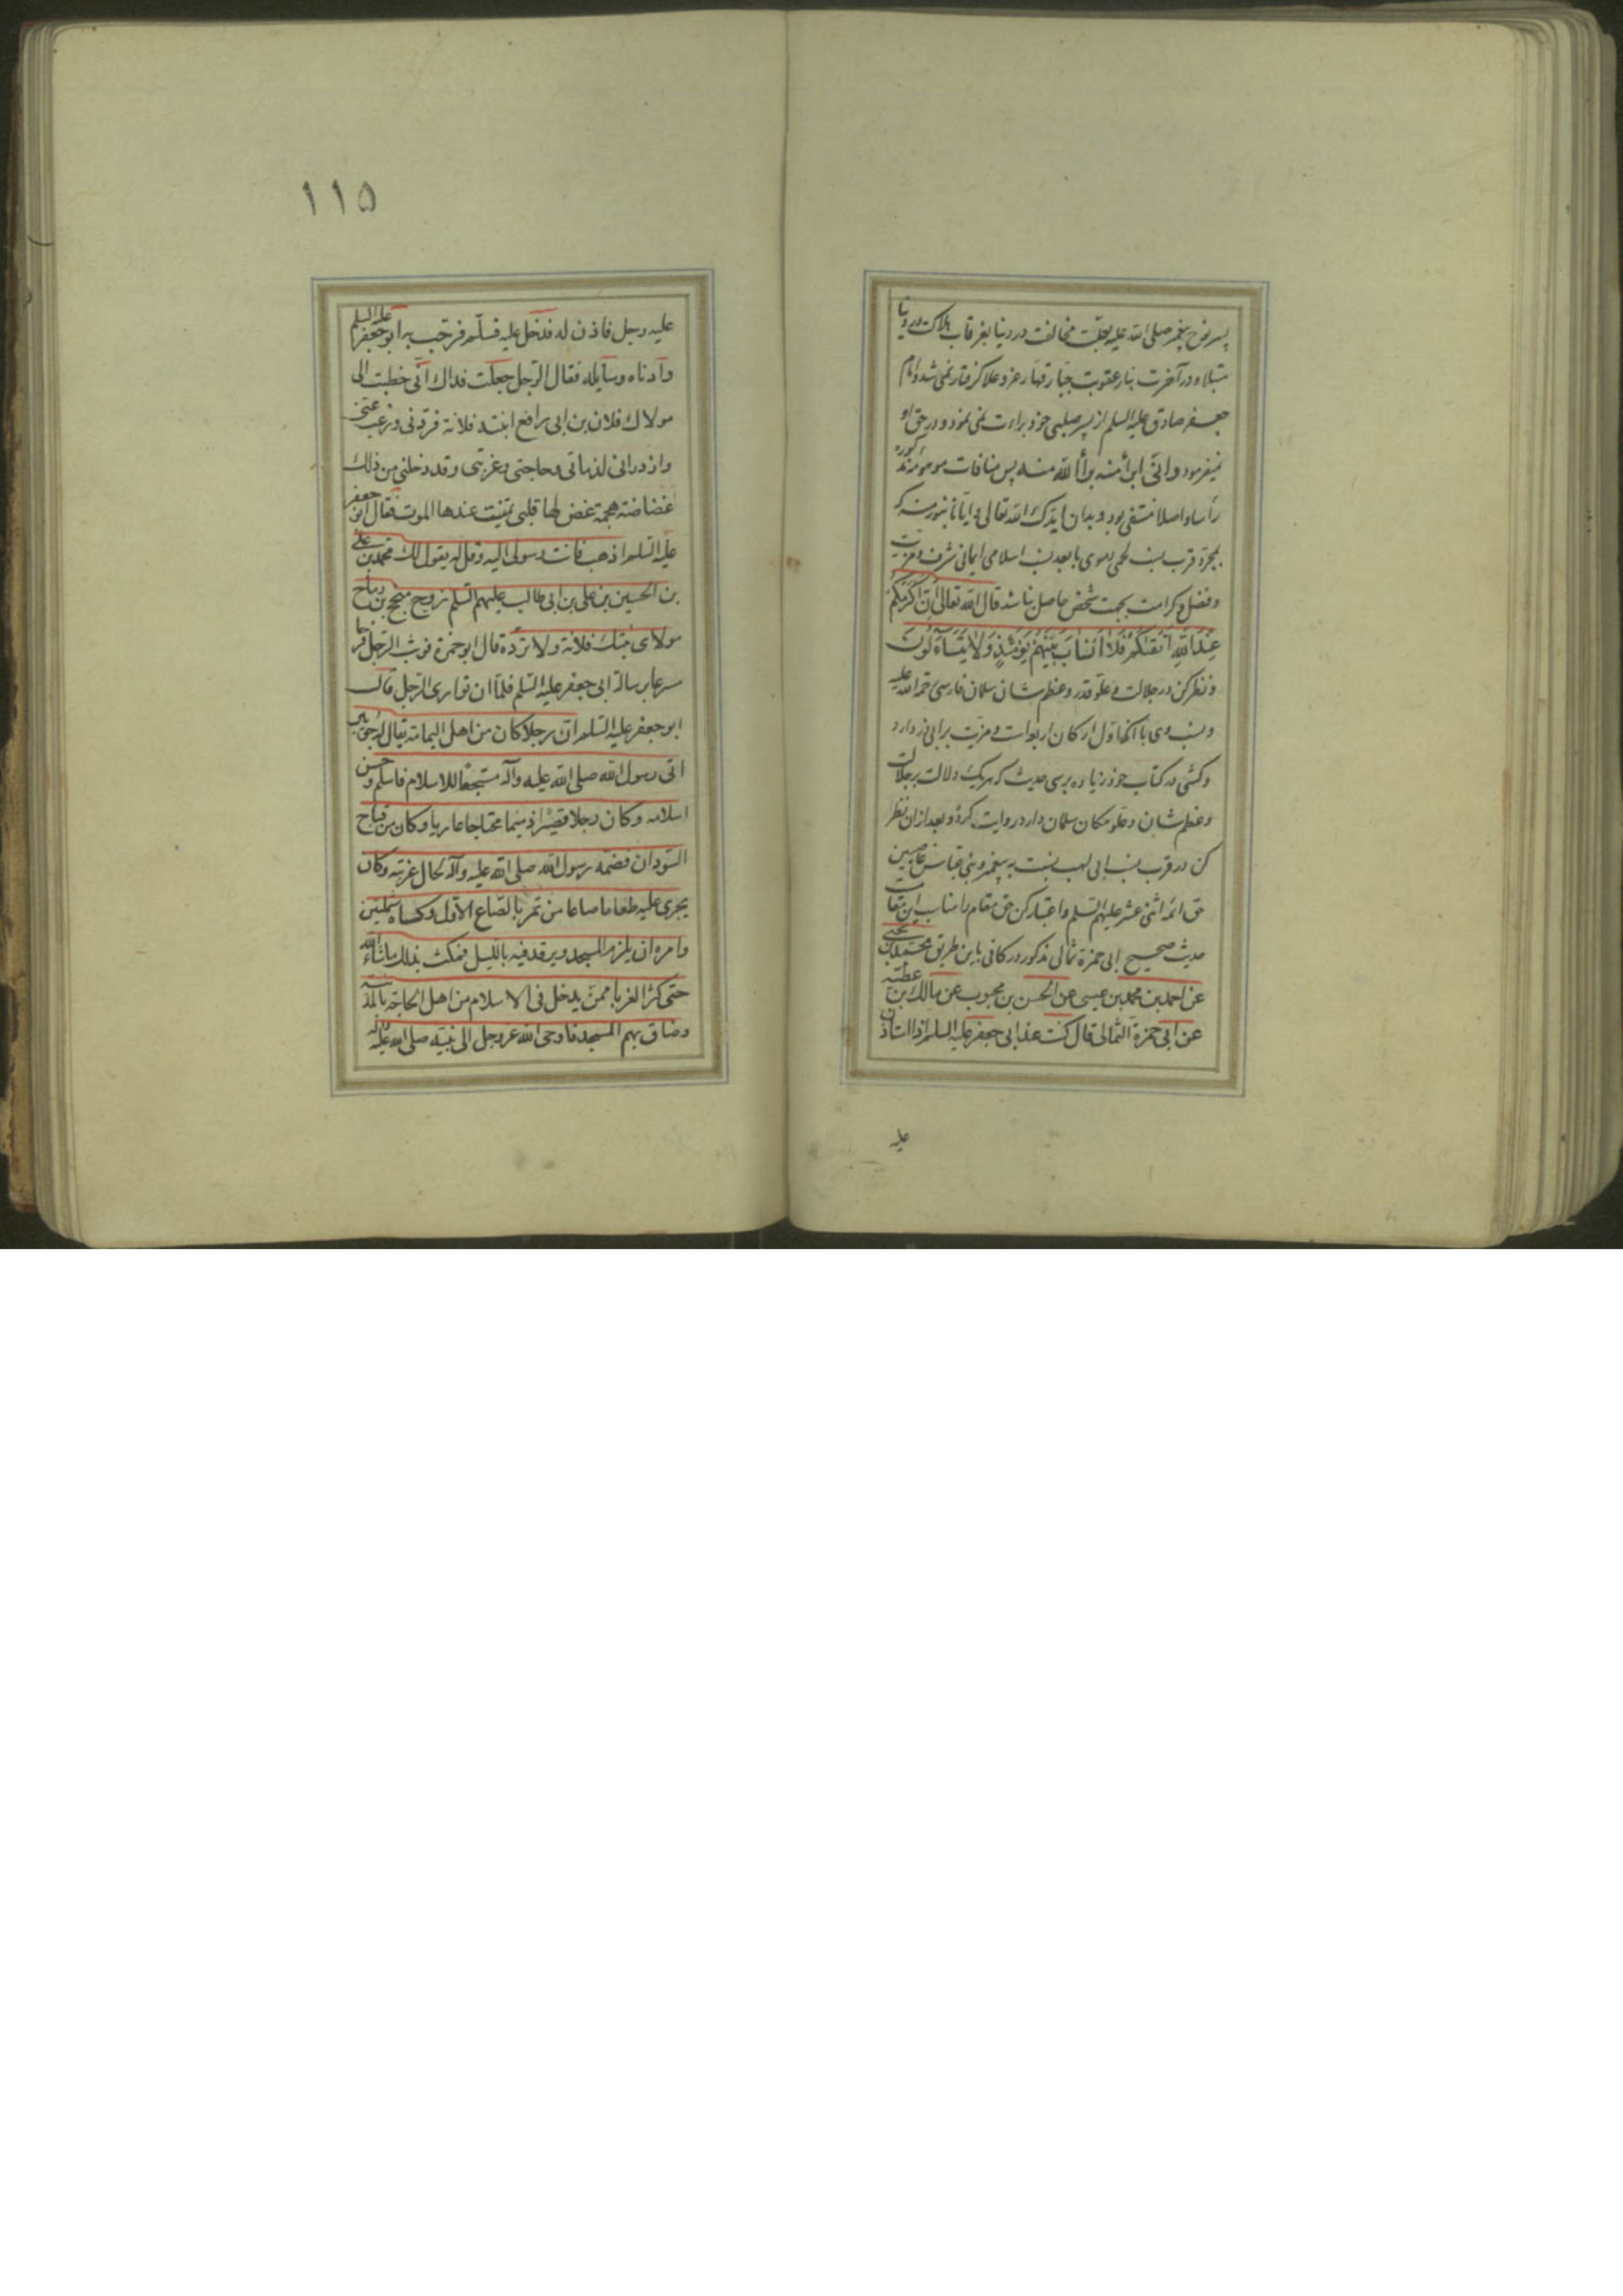 پسر نوح پیغمبر صلی الله علیه بعلت مخالفت در دنیا بغرقاب هلاکت در دنیا
مبتلا و در آخرت بنار عقوبت جبار قهار عز و علا گرفتار نمی شد و امام
جعفر صادق علیه السلم از پسر صلبی خود براءت نمی نمود و در حق او
نمیفرمود و انی ابرأ منه برأ الله منه پس منافات موهومه مذکوره
رأسا و اصلا منتفی بود و بدان ایدک الله تعالی و ایانا بنور منه که
بمجرد قرب نسب لحمی دموی با بعد نسب اسلامی ایمانی شرف و مزیت
و فضل و کرامت بجهت شخص حاصل نباشد قال الله تعالی اِنَّ اَکْرَمَکُمْ
عِنْدَ اللّٰهِ اَتْقٰیکُمْ فَلَا اَنْسَابَ بَیْنَهُمْ یَوْمَئِذٍ وَلَا یَتَسَآءَلُونَ
و نظر کن در جلالت و علو قدر و عظم شان سلمان فارسی رحمة الله علیه
و نسب وی با آنکه اول ارکان اربعه است و مزیت بر ابی ذر دارد
و کشی در کتاب خود زیاده بر سی حدیث که هریک دلالت بر جلالت
و عظم شان و علو مکان سلمان دارد روایت کرده و بعد از ان نظر
کن در قرب نسب ابی لهب نسبت به پیغمبر و بنی عباس غاصبین
حق ائمه اثنی عشر علیهم السلم و اعتبار کن حق مقام را مناسب این مقامست
حدیث صحیح ابی حمزه ثمالی مذکور در کافی باین طریق محمد بن یحیی
عن احمد بن محمد بن عیسی عن الحسن بن محبوب عن مالک بن عطیه
عن ابی حمزة الثمالی قال کنت عند ابی جعفر علیه السلم اذ استاذن
علیه
۱۱۵
علیه رجل فاذن له فدخل علیه فسلم فرحب به ابو جعفر علیه السلم
و ادناه و سایله فقال الرجل جعلت فداک انی خطبت الی
مولاک فلان بن ابی رافع ابنته فلانة فردنی و رغب عنی
و ازدرانی لدمامتی و حاجتی و غربتی و قد دخلنی من ذلک
غضاضة هجمة غض لها قلبی تمنیت عندها الموت فقال ابو جعفر
علیه السلم اذهب فانت رسولی الیه و قل له یقول لک محمد بن علی
بن الحسین بن علی بن ابی طالب علیهم السلم زوج منجح بن رباح
مولای بنتک فلانة و لا ترده قال ابو حمزة فوثب الرجل فرحا
مسرعا برسالة ابی جعفر علیه السلم فلما ان تواری الرجل قال
ابو جعفر علیه السلم ان رجلا کان من اهل الیمامة یقال له جویبر
اتی رسول الله صلی الله علیه و آله منتجعا للاسلام فاسلم و حسن
اسلامه و کان رجلا قصیرا ذمیما محتاجا عاریا و کان من قباح
السودان فضمه رسول الله صلی الله علیه و آله لحال غربته و کان
یجری علیه طعاما صاعا من تمر بالصاع الاول و کساه شملتین
و امره ان یلزم المسجد و یرقد فیه باللیل فمکث بذلک ماشاء الله
حتی کثر الغرباء ممن یدخل فی الاسلام من اهل الحاجة بالمدینة
و ضاق بهم المسجد فاوحی الله عز و جل الی نبیه صلی الله علیه و آله